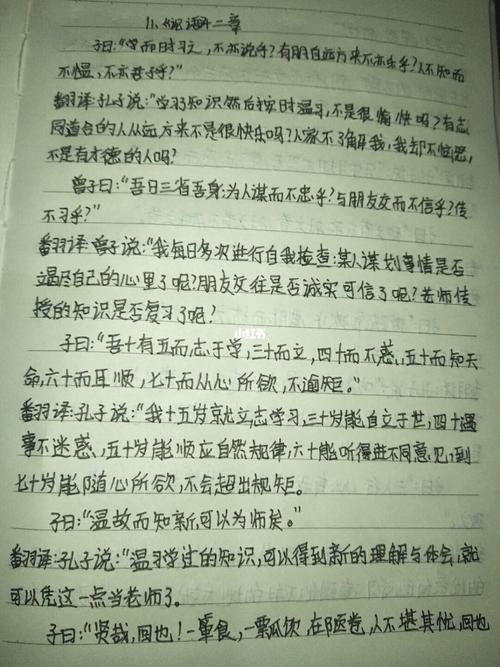 11.《论语》十二章
子曰:“学而时习之,不亦说乎?有朋自远方来不亦乐乎?人不知而
不愠,不亦君子乎?”
翻译:孔子说:“学习知识然后按时温习,不是很愉快吗?有志
同道合的人从远方来不是很快乐吗?人家不了解我,我却不恼怒,
不是有才德的人吗?
曾子曰:“吾日三省吾身:为人谋而不忠乎?与朋友交而不信乎?传
不习乎?”
翻译曾子说:“我每日多次进行自我检查:某人谋划事情是否
竭尽自己的心里了呢?朋友交往是否诚实可信了呢?老师传
授的知识是否复习了呢?
小红书
子曰:“吾十有五而志于学,三十而立,四十而不惑,五十而知天
命,六十而耳顺,七十而从心所欲,不逾矩。”
翻译:孔子说:“我十五岁就立志学习,三十岁能自立于世,四十遇
事不迷惑,五十岁能顺应自然规律,六十能听得进不同意见,到
七十岁能随心所欲,不会超出规矩。
子曰:“温故而知新,可以为师矣。”
翻译:孔子说:“温习学过的知识,可以得到新的理解与体会,就
可以凭这一点当老师了。
子曰:“贤哉,回也!一箪食,一瓢饮,在陋巷,人不堪其忧,回也